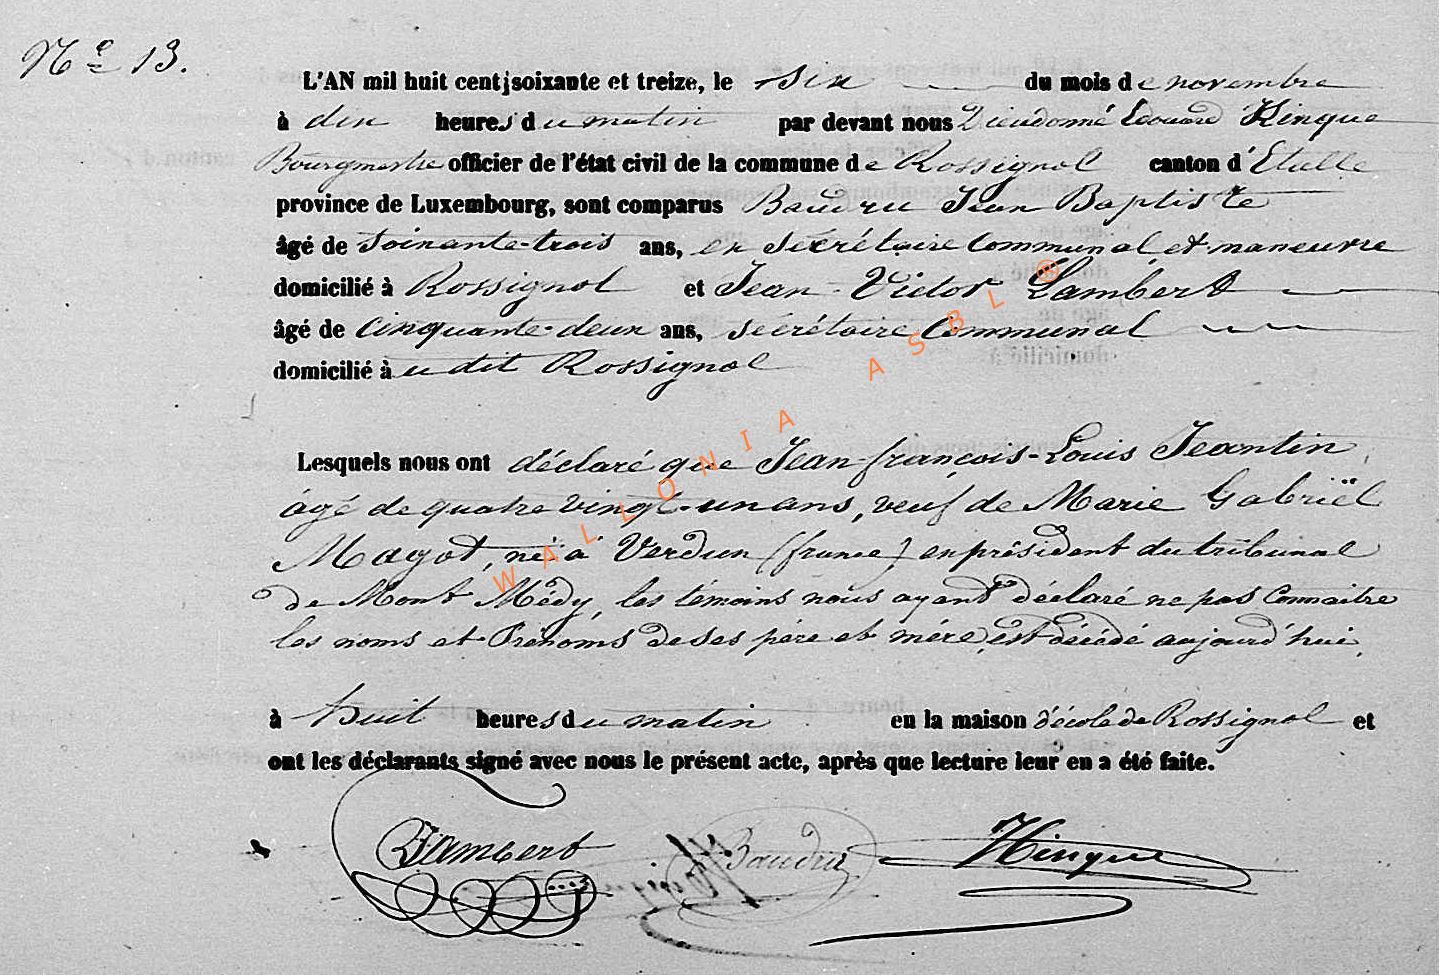 N° 13.
L'AN mil huit cent soixante et treize, le six du mois de novembre
à dix heures du matin par devant nous Dieudonné Edouard Hinque
Bourgmestre officier de l'état civil de la commune de Rossignol canton d'Etalle
province de Luxembourg, sont comparus Baudru Jean Baptiste
âgé de soixante-trois ans, ex secrétaire communal et maneuvre
domicilié à Rossignol et Jean-Victor Lambert
âgé de cinquante-deux ans, secrétaire Communal
domicilié à u dit Rossignol
Lesquels nous ont déclaré que Jean-françois-Louis Jeantin,
âgé de quatre vingt-un ans, veuf de Marie Gabriël
Magot, né à Verdun (france) ex président du tribunal
de Mont Médy, les témoins nous ayant déclaré ne pas Connaitre
les noms et Prénoms de ses père et mère, est décédé aujourd'hui,
à huit heures du matin en la maison d'école de Rossignol et
ont les déclarants signé avec nous le présent acte, après que lecture leur en a été faite.
Lambert Baudru Hinque
WALLONIA ASBL ®